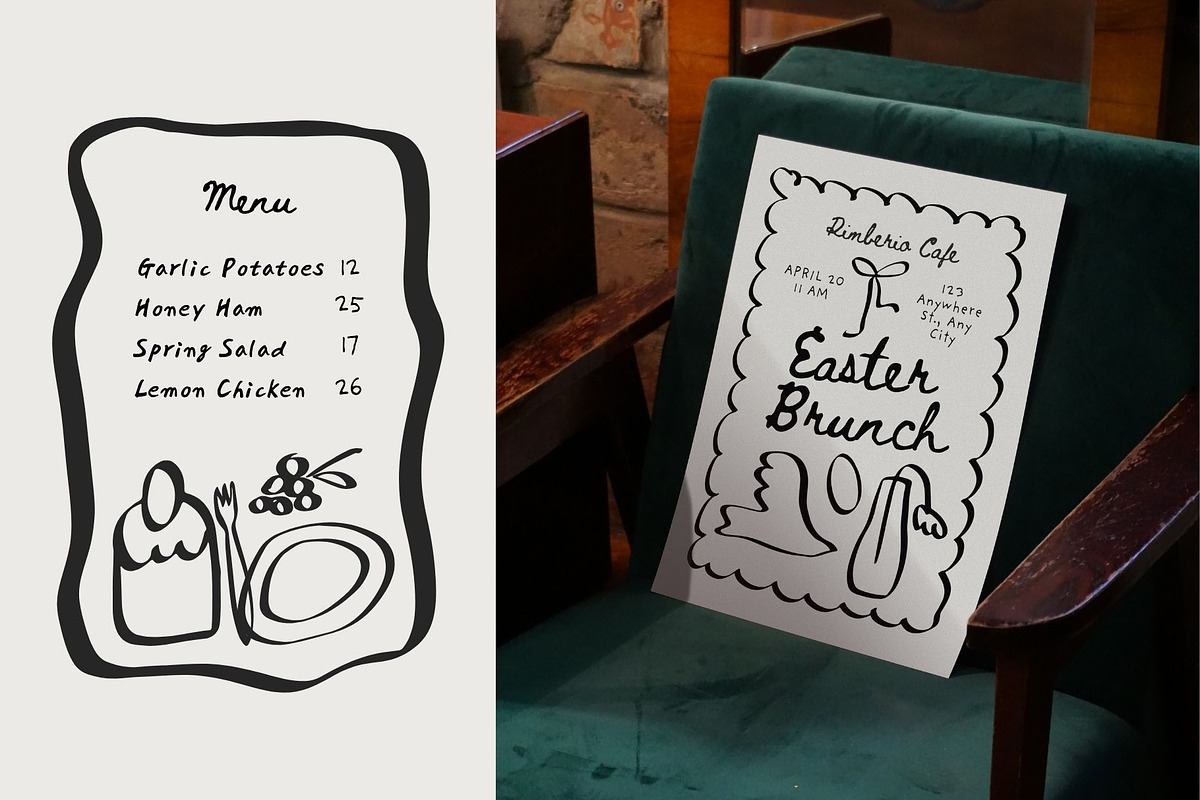 Menu
Garlic Potatoes 12
Honey Ham 25
Spring Salad 17
Lemon Chicken 26
Rimberio Cafe
APRIL 20
11 AM
123
Anywhere
St., Any
City
Easter
Brunch